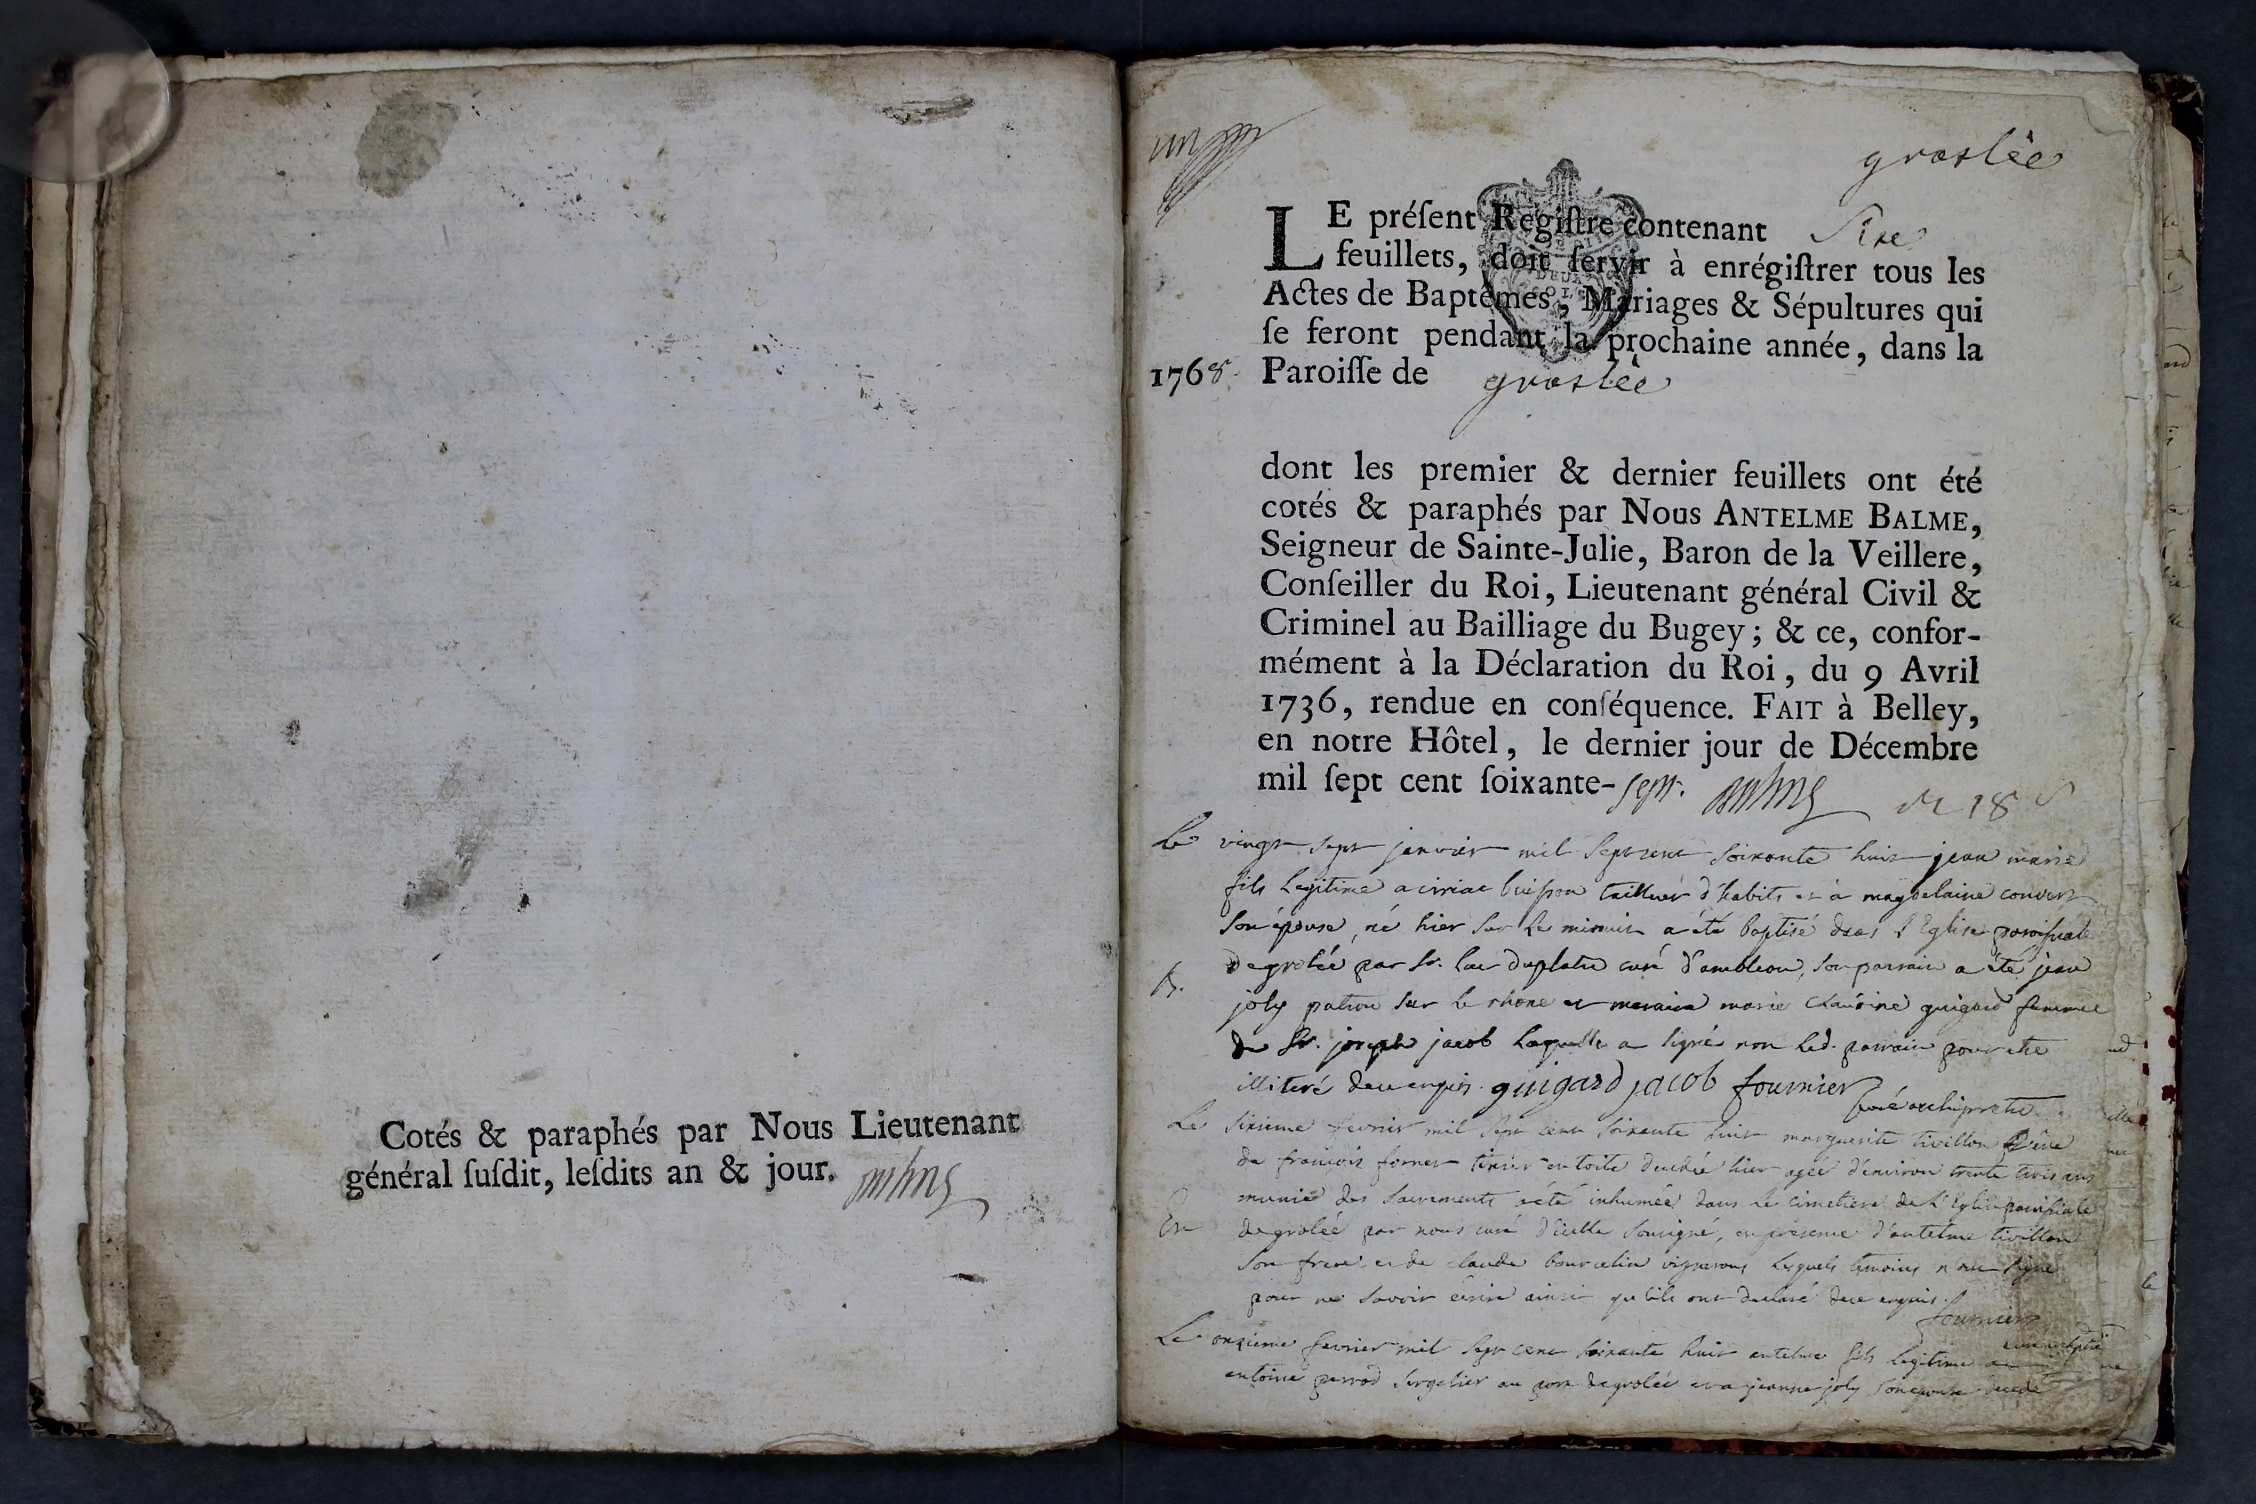 Cotés & paraphés par Nous Lieutenant
général ſuſdit, leſdits an & jour.
un
groslée
LE préſent Régiſtre contenant Six
feuillets, doit ſervir à enrégiſtrer tous les
Actes de Baptêmes, Mariages & Sépultures qui
ſe feront pendant la prochaine année, dans la
1768. Paroiſſe de groslée
dont les premier & dernier feuillets ont été
cotés & paraphés par Nous ANTELME BALME,
Seigneur de Sainte-Julie, Baron de la Veillere,
Conſeiller du Roi, Lieutenant général Civil &
Criminel au Bailliage du Bugey; & ce, confor-
mément à la Déclaration du Roi, du 9 Avril
1736, rendue en conſéquence. FAIT à Belley,
en notre Hôtel, le dernier jour de Décembre
mil ſept cent ſoixante-sept.
Le vingt sept janvier mil sept cent soixante huit jean marie
fils legitime a ciriac buisson tailleur d'habits et à magdelaine convert
son épouse, né hier sur le minuit a été baptisé dans l'Eglise paroissiale
de grolée par Sr. duplatre curé d'ambleon, son parrain a été jean
B.
joly patron sur le rhone et maraine marie claudine guigard femme
de Sr. joseph jacob laquelle a signé non led. parrain pour etre
illiteré de ce enquis. guigard jacob fournier
curé archipretre
Le sixieme fevrier mil sept cent soixante huit marguerite tivillon
de francois forner tixier en toile decedée hier agée d'environ trente trois ans
munie des sacrements a été inhumée dans le cimetiere de l'Eglise paroissiale
En
de grolée par nous curé d'icelle sousigné, en présence d'antelme tivillon
son frere et de claude bourcelin vignerons lesquels temoins n'ont signé
pour ne savoir écrire ainsi qu'ils ont declaré de ce enquis.
fournier
Le onzieme fevrier mil sept cent soixante huit antelme fils legitime a
antoine perrod au port de grolée et a jeanne joly son epouse decedé